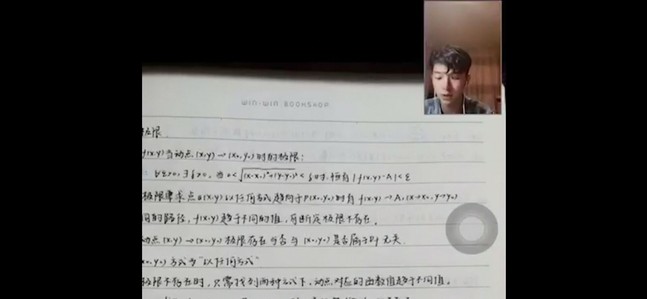 WIN-WIN BOOKSHOP
极限
f(x,y)当动点(x,y)→(x₀,y₀)时的极限:
∀ε>0,∃δ>0,当0<√(x-x₀)²+(y-y₀)²<δ时,恒有|f(x,y)-A|<ε
极限要求点(x,y)以任何方式趋向于P(x₀,y₀)时有f(x,y)→A,(x→x₀,y→y₀)
同的路径,f(x,y)趋于不同的值,可断定极限不存在.
动点(x,y)→(x₀,y₀)极限存在与否与(x₀,y₀)是否属于D无关
x₀,y₀)方式为“以任何方式”
极限不存在时,只需找到两种方式下,动点对应的函数值趋于不同值.